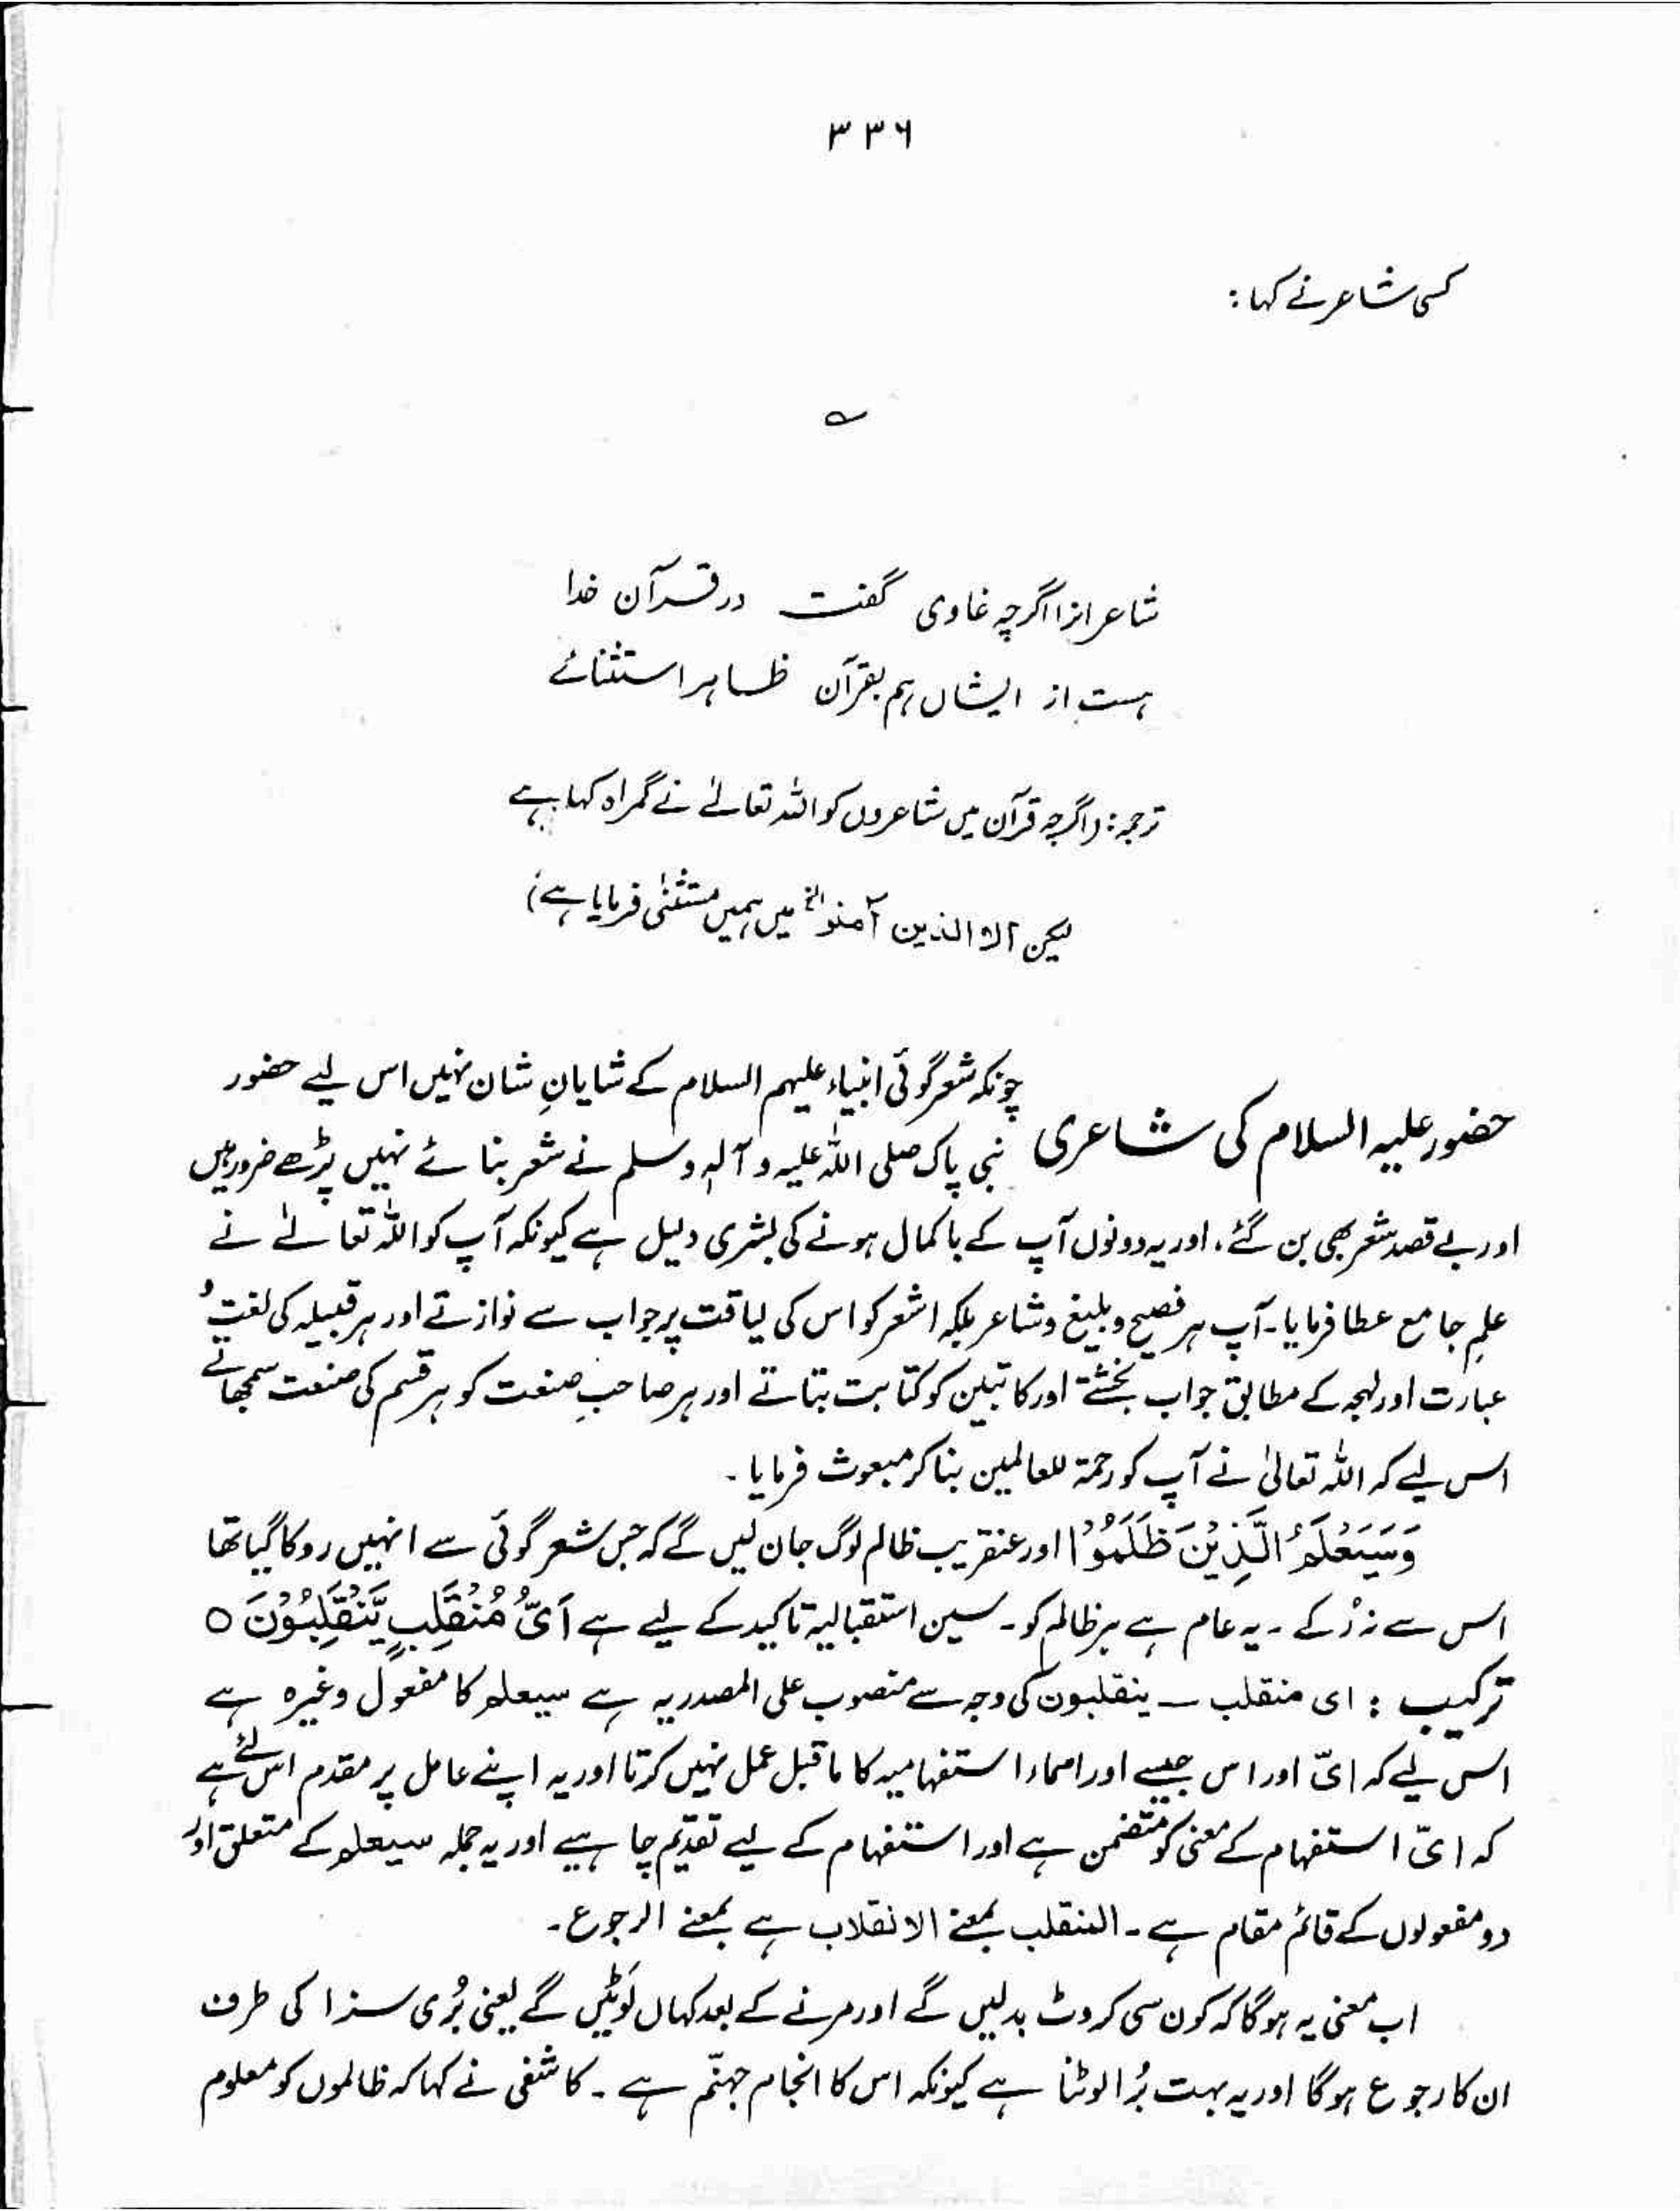 ۳۳۶
کسی شاعر نے کہا :
؎
شاعرانرا اگرچہ غاوی گفت در قرآن خدا
ہست از ایشاں ہم بقرآن ظاہر استثنائے
ترجمہ : (اگرچہ قرآن میں شاعروں کو اللہ تعالےٰ نے گمراہ کہا ہے
لیکن الا الذین آمنوا الخ میں ہمیں مستثنیٰ فرمایا ہے)
چونکہ شعر گوئی انبیاء علیہم السلام کے شایانِ شان نہیں اس لیے حضور
حضور علیہ السلام کی شاعری
نبی پاک صلی اللہ علیہ و آلہٖ وسلم نے شعر بنائے نہیں پڑھے ضرور ہیں
اور بے قصد شعر بھی بن گئے، اور یہ دونوں آپ کے باکمال ہونے کی بشری دلیل ہے کیونکہ آپ کو اللہ تعالےٰ نے
علمِ جامع عطا فرمایا۔ آپ ہر فصیح و بلیغ و شاعر بلکہ اشعر کو اس کی لیاقت پر جواب سے نوازتے اور ہر قبیلہ کی لغت و
عبارت اور لہجہ کے مطابق جواب بخشتے اور کاتبین کو کتابت بتاتے اور ہر صاحبِ صنعت کو ہر قسم کی صنعت سمجھاتے
اس لیے کہ اللہ تعالیٰ نے آپ کو رحمۃ للعالمین بنا کر مبعوث فرمایا ۔
وَسَیَعْلَمُ الَّذِیْنَ ظَلَمُوْٓا اور عنقریب ظالم لوگ جان لیں گے کہ جس شعر گوئی سے انہیں روکا گیا تھا
اس سے نہ رُکے ۔ یہ عام ہے ہر ظالم کو ۔ سین استقبالیہ تاکید کے لیے ہے اَیَّ مُنْقَلَبٍ یَّنْقَلِبُوْنَ ○
ترکیب : ای منقلب ۔ ینقلبون کی وجہ سے منصوب علی المصدریہ ہے سیعلم کا مفعول وغیرہ ہے
اس لیے کہ ایّ اور اس جیسے اور اسماء استفہامیہ کا ماقبل عمل نہیں کرتا اور یہ اپنے عامل پر مقدم اس لئے ہے
کہ ایّ استفہام کے معنی کو متضمن ہے اور استفہام کے لیے تقدیم چاہیے اور یہ جملہ سیعلم کے متعلق اور
دو مفعولوں کے قائم مقام ہے ۔ المنقلب بمعنے الانقلاب ہے بمعنے الرجوع ۔
اب معنی یہ ہوگا کہ کون سی کروٹ بدلیں گے اور مرنے کے بعد کہاں لَوٹیں گے یعنی بُری سزا کی طرف
ان کا رجوع ہوگا اور یہ بہت بُرا لوٹنا ہے کیونکہ اس کا انجام جہنّم ہے ۔ کاشفی نے کہا کہ ظالموں کو معلوم